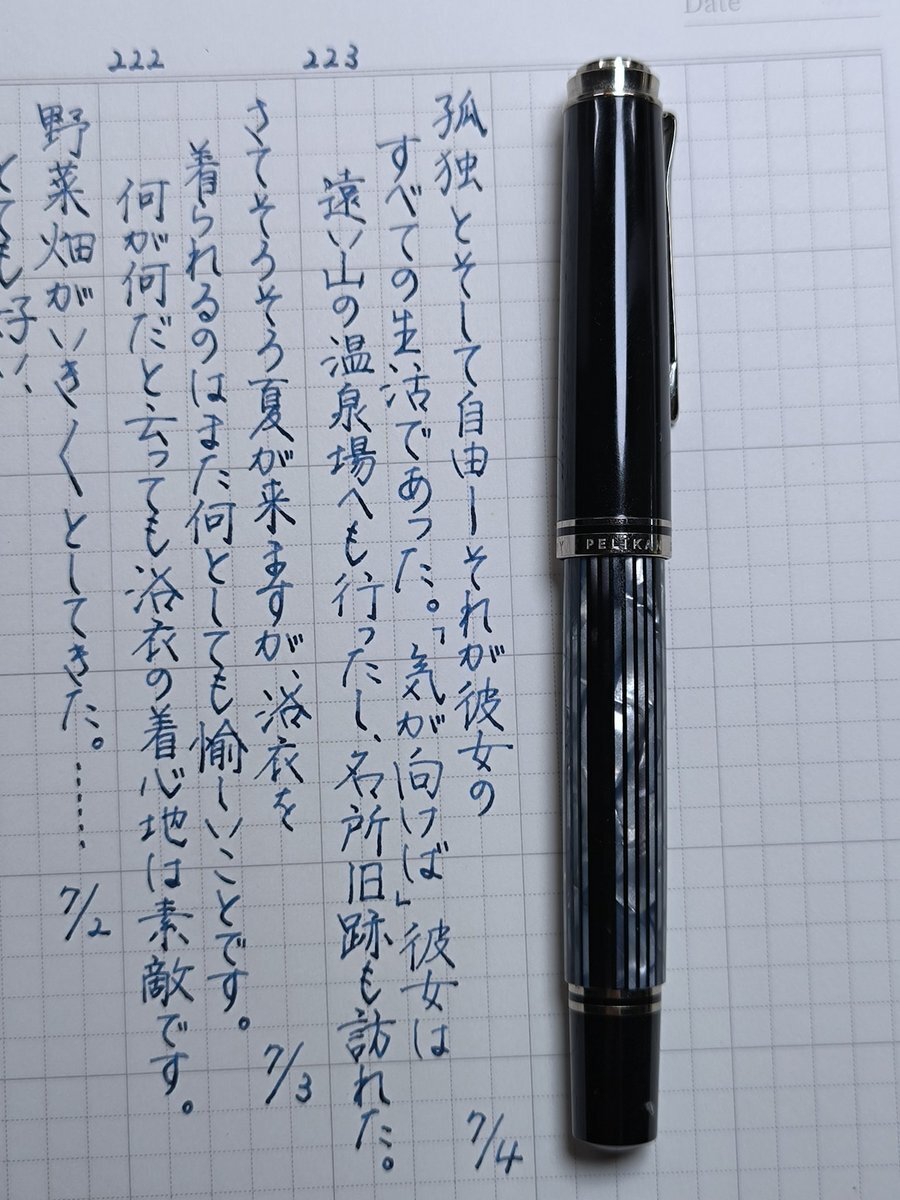 Date
223
222
孤独とそして自由ーそれが彼女の
すべての生活であった。「気が向けば」彼女は
遠い山の温泉場へも行ったし、名所旧跡も訪れた。
7/4
さてそろそろ夏が来ますが、浴衣を
着られるのはまた何としても愉しいことです。
何が何だと云っても浴衣の着心地は素敵です。
7/3
野菜畑がいき〱としてきた。……
7/2
とても
PELIKAN